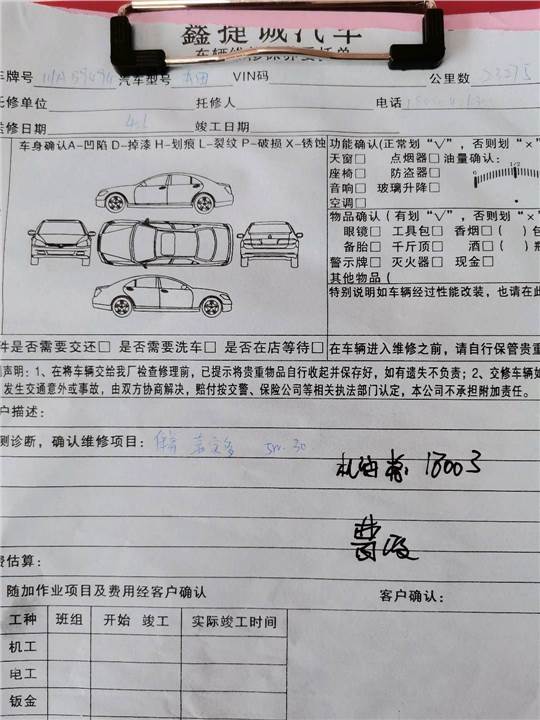 鑫捷诚汽车
车牌号 汽车型号 本田 VIN码 公里数
托修单位 托修人 电话
送修日期 4.1 竣工日期
车身确认A-凹陷 D-掉漆 H-划痕 L-裂纹 P-破损 X-锈蚀
功能确认(正常划“√”,否则划“×”
天窗□ 点烟器□ 油量确认:
座椅□ 防盗器□ 0 1/2
音响□ 玻璃升降□
空调□
物品确认(有划“√”,否则划“×”
眼镜□ 工具包□ 香烟□( )包
备胎□ 千斤顶□ 酒□( )瓶
警示牌□ 灭火器□ 现金□
其他物品(
特别说明如车辆经过性能改装,也请在此
件是否需要交还□ 是否需要洗车□ 是否在店等待□
在车辆进入维修之前,请自行保管贵重
声明:1、在将车辆交给我厂检查修理前,已提示将贵重物品自行收起并保存好,如有遗失不负责;2、交修车辆如
发生交通意外或事故,由双方协商解决,赔付按交警、保险公司等相关执法部门认定,本公司不承担附加责任。
户描述:
测诊断,确认维修项目: 保养 嘉实多 5W-30
机油 18003
费估算:
随加作业项目及费用经客户确认 客户确认:
工种 班组 开始 竣工 实际竣工时间
机工
电工
钣金